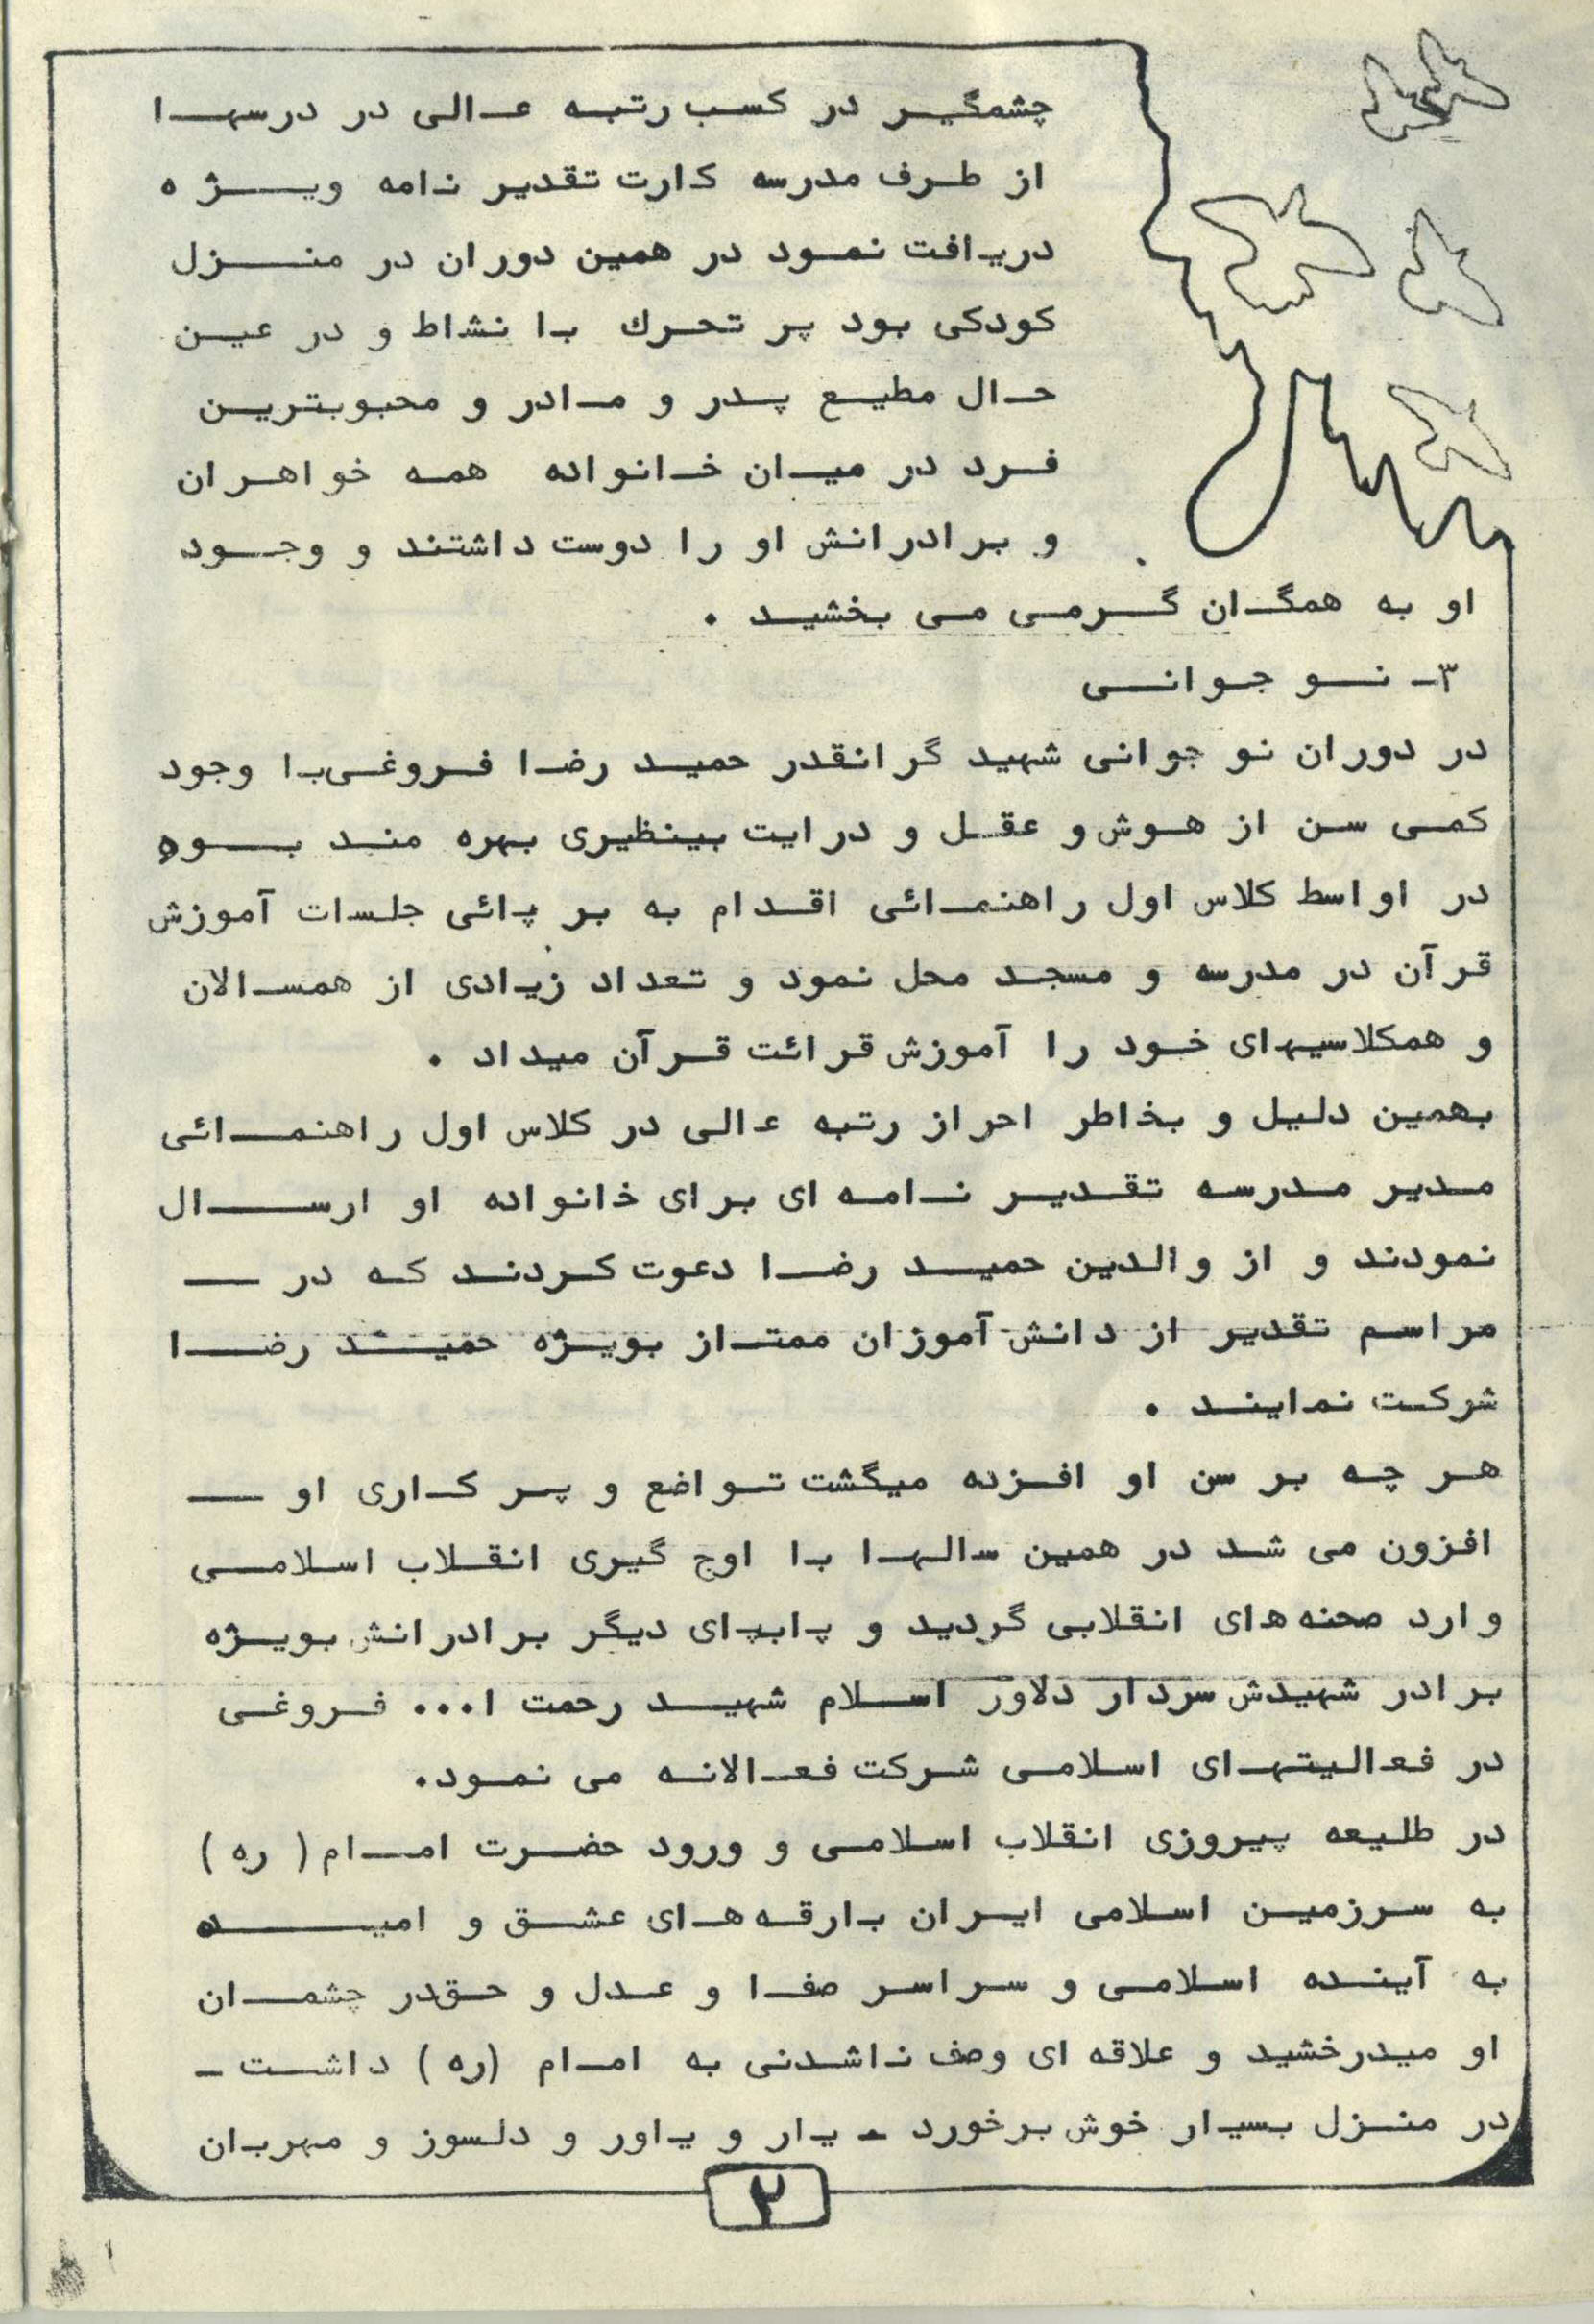 چشمگیر در کسب رتبه عالی در درسها
از طرف مدرسه کارت تقدیر نامه ویژه
دریافت نمود در همین دوران در منزل
کودکی بود پر تحرك با نشاط و در عین
حال مطیع پدر و مادر و محبوبترین
فرد در میان خانواده همه خواهران
و برادرانش او را دوست داشتند و وجود
او به همگان گرمی می بخشید .
۳- نو جوانی
در دوران نو جوانی شهید گرانقدر حمید رضا فروغی با وجود
کمی سن از هوش و عقل و درایت بینظیری بهره مند بوده
در اواسط کلاس اول راهنمائی اقدام به بر پائی جلسات آموزش
قرآن در مدرسه و مسجد محل نمود و تعداد زیادی از همسالان
و همکلاسیهای خود را آموزش قرائت قرآن میداد .
بهمین دلیل و بخاطر احراز رتبه عالی در کلاس اول راهنمائی
مدیر مدرسه تقدیر نامه ای برای خانواده او ارسال
نمودند و از والدین حمید رضا دعوت کردند که در —
مراسم تقدیر از دانش آموزان ممتاز بویژه حمید رضا
شرکت نمایند .
هر چه بر سن او افزده میگشت تواضع و پر کاری او —
افزون می شد در همین سالها با اوج گیری انقلاب اسلامی
وارد صحنه های انقلابی گردید و پابپای دیگر برادرانش بویژه
برادر شهیدش سردار دلاور اسلام شهید رحمت ا... فروغی
در فعالیتهای اسلامی شرکت فعالانه می نمود.
در طلیعه پیروزی انقلاب اسلامی و ورود حضرت امام ( ره )
به سرزمین اسلامی ایران بارقه های عشق و امید
به آینده اسلامی و سراسر صفا و عدل و حق در چشمان
او میدرخشید و علاقه ای وصف ناشدنی به امام (ره ) داشت -
در منزل بسیار خوش برخورد - یار و یاور و دلسوز و مهربان
۲